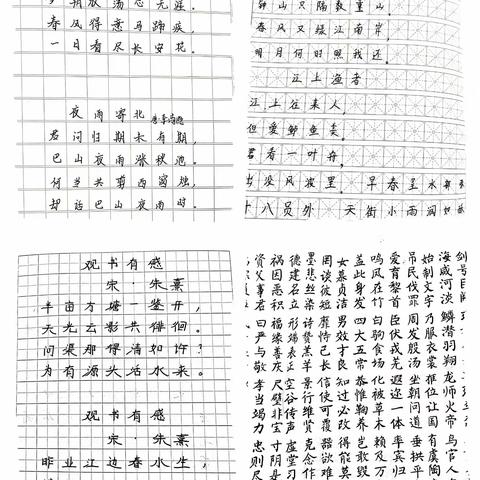 放荡思无涯。
春风得意马蹄疾,
一日看尽长安花。
夜雨寄北 唐李商隐
君问归期未有期,
巴山夜雨涨秋池。
何当共剪西窗烛,
却话巴山夜雨时。
钟山只隔数重山。
春风又绿江南岸,
明月何时照我还。
江上渔者
江上往来人,
但爱鲈鱼美
君看一叶舟,
出没风波里。 早春呈水部张
十八员外 天街小雨润如酥
观书有感
宋·朱熹
半亩方塘一鉴开,
天光云影共徘徊。
问渠那得清如许?
为有源头活水来。
观书有感
宋·朱熹
昨夜江边春水生,
剑号巨阙
海咸河淡鳞潜羽翔龙师火帝鸟官人
始制文字乃服衣裳推位让国有虞陶
吊民伐罪周发殷汤坐朝问道垂拱平
爱育黎首臣伏戎羌遐迩一体率宾归
鸣凤在竹白驹食场化被草木赖及万
盖此身发四大五常恭惟鞠养岂敢毁
女慕贞洁男效才良知过必改得能莫
罔谈彼短靡恃己长信使可覆器欲难
墨悲丝染诗赞羔羊景行维贤克念作
德建名立形端表正空谷传声虚堂习
祸因恶积福缘善庆尺璧非宝寸阴是
资父事君曰严与敬孝当竭力忠则尽